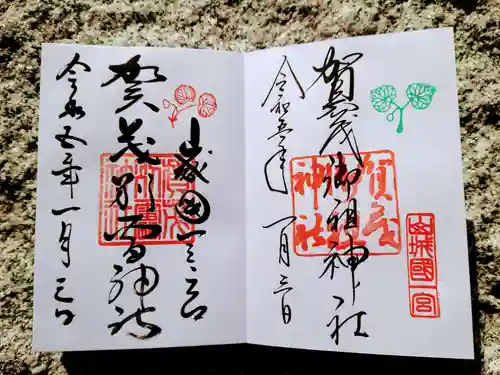 山城國一宮
賀茂御祖神社
賀茂
御祖
神社
令和五年 一月三日
山城国一之宮
賀茂別雷神社
令和五年一月三日